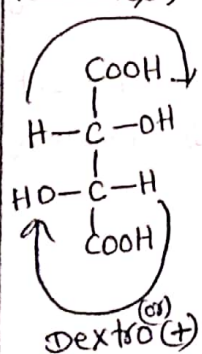 COOH
H-C-OH
HO-C-H
COOH
(or)
Dextro (+)